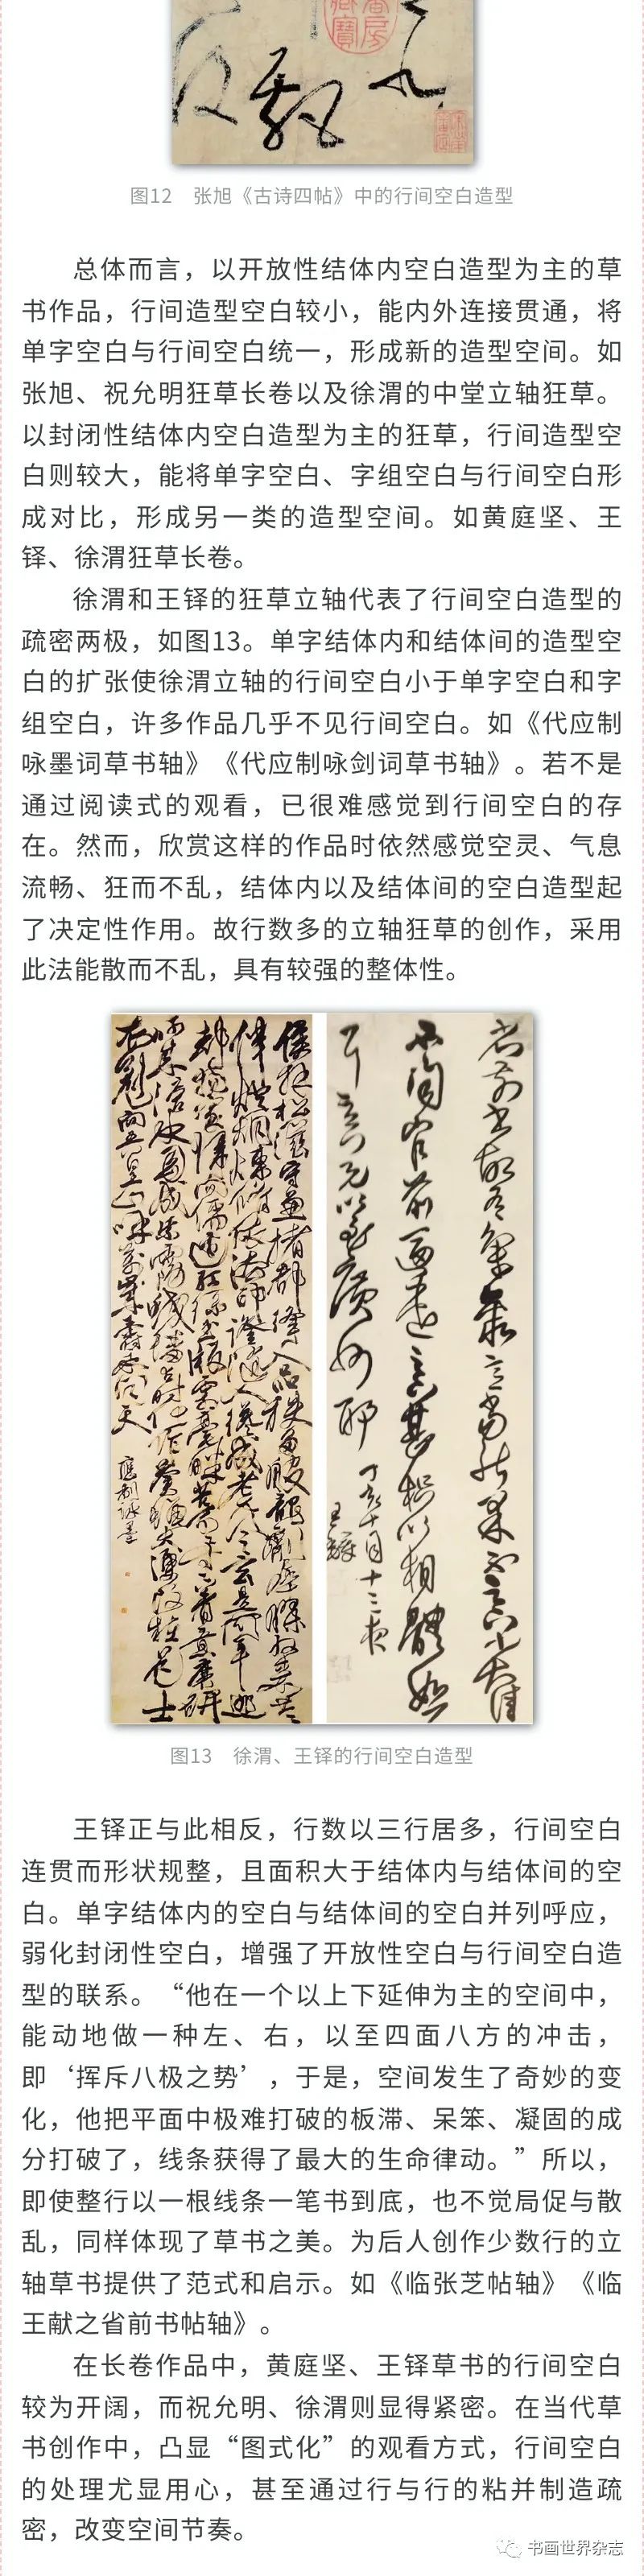 图12 张旭《古诗四帖》中的行间空白造型
总体而言，以开放性结体内空白造型为主的草
书作品，行间造型空白较小，能内外连接贯通，将
单字空白与行间空白统一，形成新的造型空间。如
张旭、祝允明狂草长卷以及徐渭的中堂立轴狂草。
以封闭性结体内空白造型为主的狂草，行间造型空
白则较大，能将单字空白、字组空白与行间空白形
成对比，形成另一类的造型空间。如黄庭坚、王
铎、徐渭狂草长卷。
徐渭和王铎的狂草立轴代表了行间空白造型的
疏密两极，如图13。单字结体内和结体间的造型空
白的扩张使徐渭立轴的行间空白小于单字空白和字
组空白，许多作品几乎不见行间空白。如《代应制
咏墨词草书轴》《代应制咏剑词草书轴》。若不是
通过阅读式的观看，已很难感觉到行间空白的存
在。然而，欣赏这样的作品时依然感觉空灵、气息
流畅、狂而不乱，结体内以及结体间的空白造型起
了决定性作用。故行数多的立轴狂草的创作，采用
此法能散而不乱，具有较强的整体性。
图13 徐渭、王铎的行间空白造型
王铎正与此相反，行数以三行居多，行间空白
连贯而形状规整，且面积大于结体内与结体间的空
白。单字结体内的空白与结体间的空白并列呼应，
弱化封闭性空白，增强了开放性空白与行间空白造
型的联系。“他在一个以上下延伸为主的空间中，
能动地做一种左、右，以至四面八方的冲击，
即‘挥斥八极之势’，于是，空间发生了奇妙的变
化，他把平面中极难打破的板滞、呆笨、凝固的成
分打破了，线条获得了最大的生命律动。”所以，
即使整行以一根线条一笔书到底，也不觉局促与散
乱，同样体现了草书之美。为后人创作少数行的立
轴草书提供了范式和启示。如《临张芝帖轴》《临
王献之省前书帖轴》。
在长卷作品中，黄庭坚、王铎草书的行间空白
较为开阔，而祝允明、徐渭则显得紧密。在当代草
书创作中，凸显“图式化”的观看方式，行间空白
的处理尤显用心，甚至通过行与行的粘并制造疏
密，改变空间节奏。
书画世界杂志